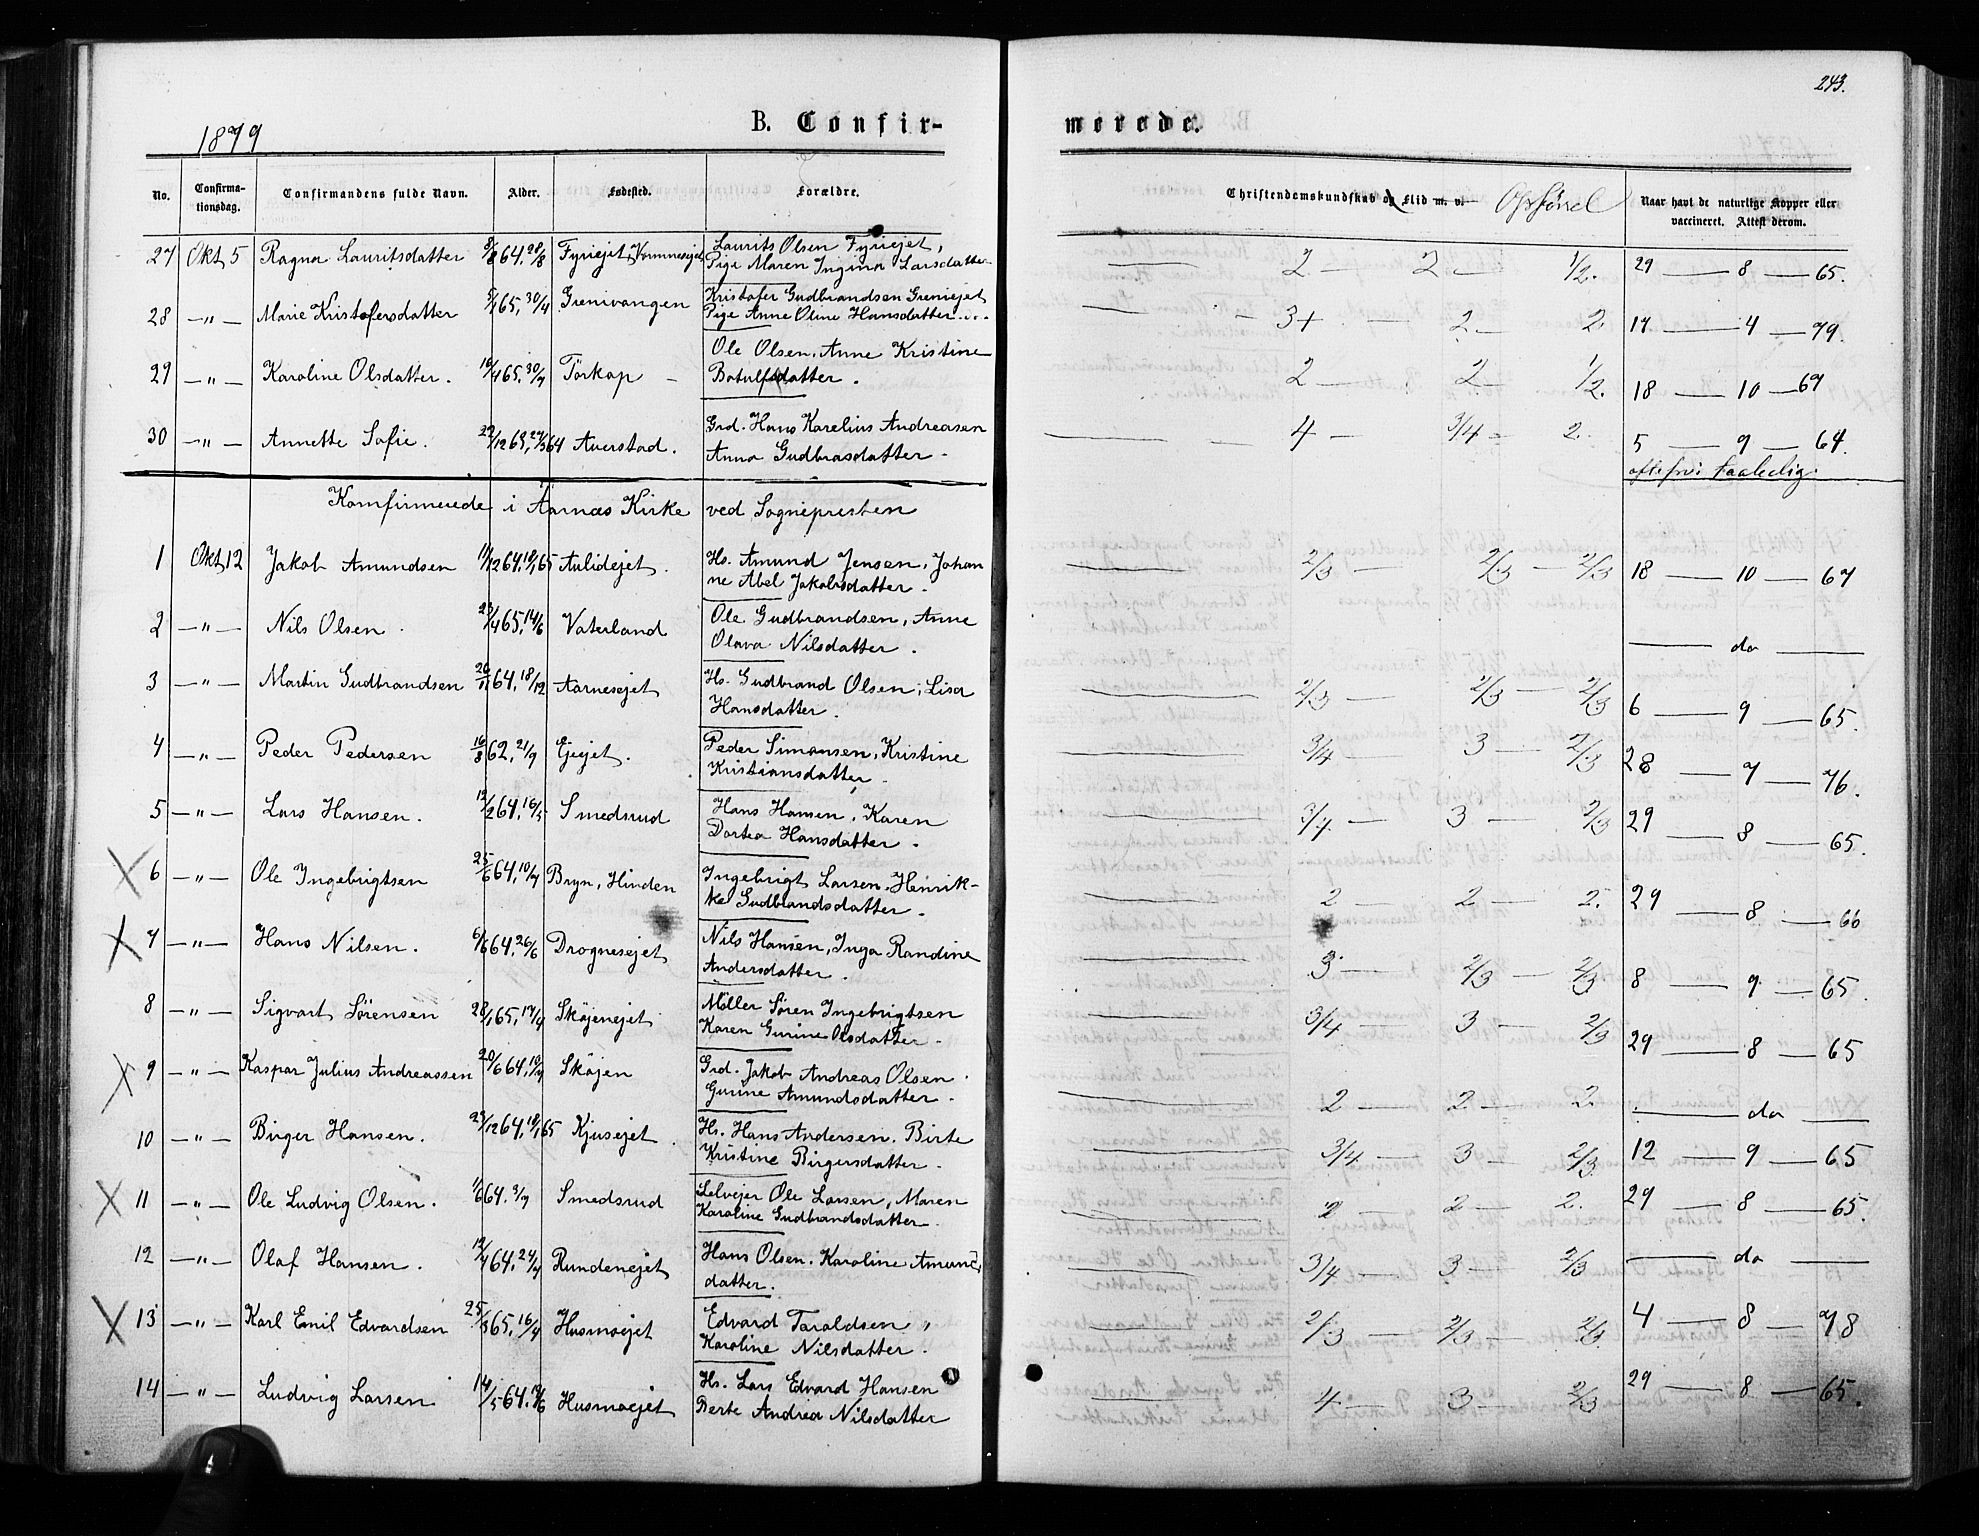 243.
1879
B. Confir-
merede.
No. Confirma-tionsdag. Confirmandens fulde Navn. Alder. Fødested. Forældre. Christendomskundskab og Flid m. v. Opførsel Naar havt de naturlige Kopper eller vaccineret. Attest derom.
27 Okt 5 Ragna Lauritsdatter 3/8 64, 28/8 Fyriejet, Vormnesejet Laurits Olsen Fyriejet, — 2 — 2 — 1/2. 29 — 8 — 65.
Pige Maren Ingina Larsdatter
28 —"— Marie Kristofersdatter 65, 30/4 Grenivangen Kristofer Gudbrandsen Greniejet — 3+ 2 — 2. 17 — 4 — 79.
Pige Anne Oline Hansdatter
29 —"— Karoline Olsdatter. 19/4 65, 30/7 Törkop Ole Olsen, Anne Kristine — 2 — 2 — 1/2. 18 — 10 — 67
Botulfsdatter.
30 —"— Annette Sofie. 29/12 63, 27/3 64 Auerstad. Grd. Hans Karelius Andreasen — 4 — 3/4 — 2. 5 — 9 — 64.
Anna Gudbrasdatter
Komfirmerede i Aarnæs Kirke ved Sognepresten
1 Okt 12 Jakob Amundsen 11/12 64, 19/1 65 Aulidejet. Hs. Amund Jensen, Johan — 2/3 — 2/3 — 2/3 18 — 10 — 67
ne Abel Jakobsdatter.
2 —"— Nils Olsen 23/4 65, 14/6 Vaterland Ole Gudbrandsen, Anne — do —
Olava Nilsdatter.
3 —"— Martin Gudbrandsen 26/11 64, 18/12 Aarnesejet Hs. Gudbrand Olsen, Lisa — 2/3 — 2/3 — 2/3 6 — 9 — 65.
Hansdatter.
4 —"— Peder Pedersen 16/8 62, 21/9 Ejejet. Peder Simonsen, Kristine — 3/4 3 — 2/3 28 — 7 — 76.
Kristiansdatter
5 —"— Lars Hansen. 12/2 64, 16/5 Smedsrud Hans Hansen, Karen — 3/4 — 3 — 2/3 29 — 8 — 65.
Dortea Hansdatter.
X 6 —"— Ole Ingebrigtsen 25/6 64, 10/7 Bryn, Hinden Ingebrigt Larsen, Henrik- — 2 — 2 — 2. 29 — 8 — 66
ke Gudbrandsdatter.
X 7 —"— Hans Nilsen. 6/6 64, 26/6 Drognesejet Nils Hansen, Inga Randine — 3 — 2/3 — 2/3 8 — 9 — 65.
Andersdatter.
8 —"— Sigvart Sörensen 28/1 65, 17/4 Sköjenejet Möller Sören Ingebrigtsen — 3/4 — 3 — 2/3 29 — 8 — 65
Karen Gurine Olsdatter.
X 9 —"— Kaspar Julius Andreassen 20/6 64, 10/7 Sköjen Grd. Jakob Andreas Olsen. — 2 — 2 — 2. — do —
Gurine Amundsdatter.
10 —"— Birger Hansen. 23/12 64, 19/1 65 Kjusejet. Hs. Hans Andersen. Birte — 3/4 — 3 — 2/3. 12 — 9 — 65
Kristine Birgersdatter.
X 11 —"— Ole Ludvig Olsen. 11/6 64, 3/7 Smedsrud Selvejer Ole Larsen, Maren — 2 — 2 — 2. 29 — 8 — 65.
Karoline Gudbrandsdatter.
12 —"— Olaf Hansen. 12/4 64, 24/7 Rundenejet Hans Olsen. Karoline Amunds — 3/4 — 3 — 2/3 — do —
datter.
X 13 —"— Karl Emil Edvardsen 25/3 65, 16/4 Husmoejet Edvard Taraldsen, — 2/3 — 2/3 — 2/3. 4 — 8 — 78
Karoline Nilsdatter.
14 —"— Ludvig Larsen 14/5 64, 19/6 Husmoejet Hs. Lars Edvard Hansen — 4 — 3 — 2/3 29 — 8 — 65.
Berte Andrea Nilsdatter